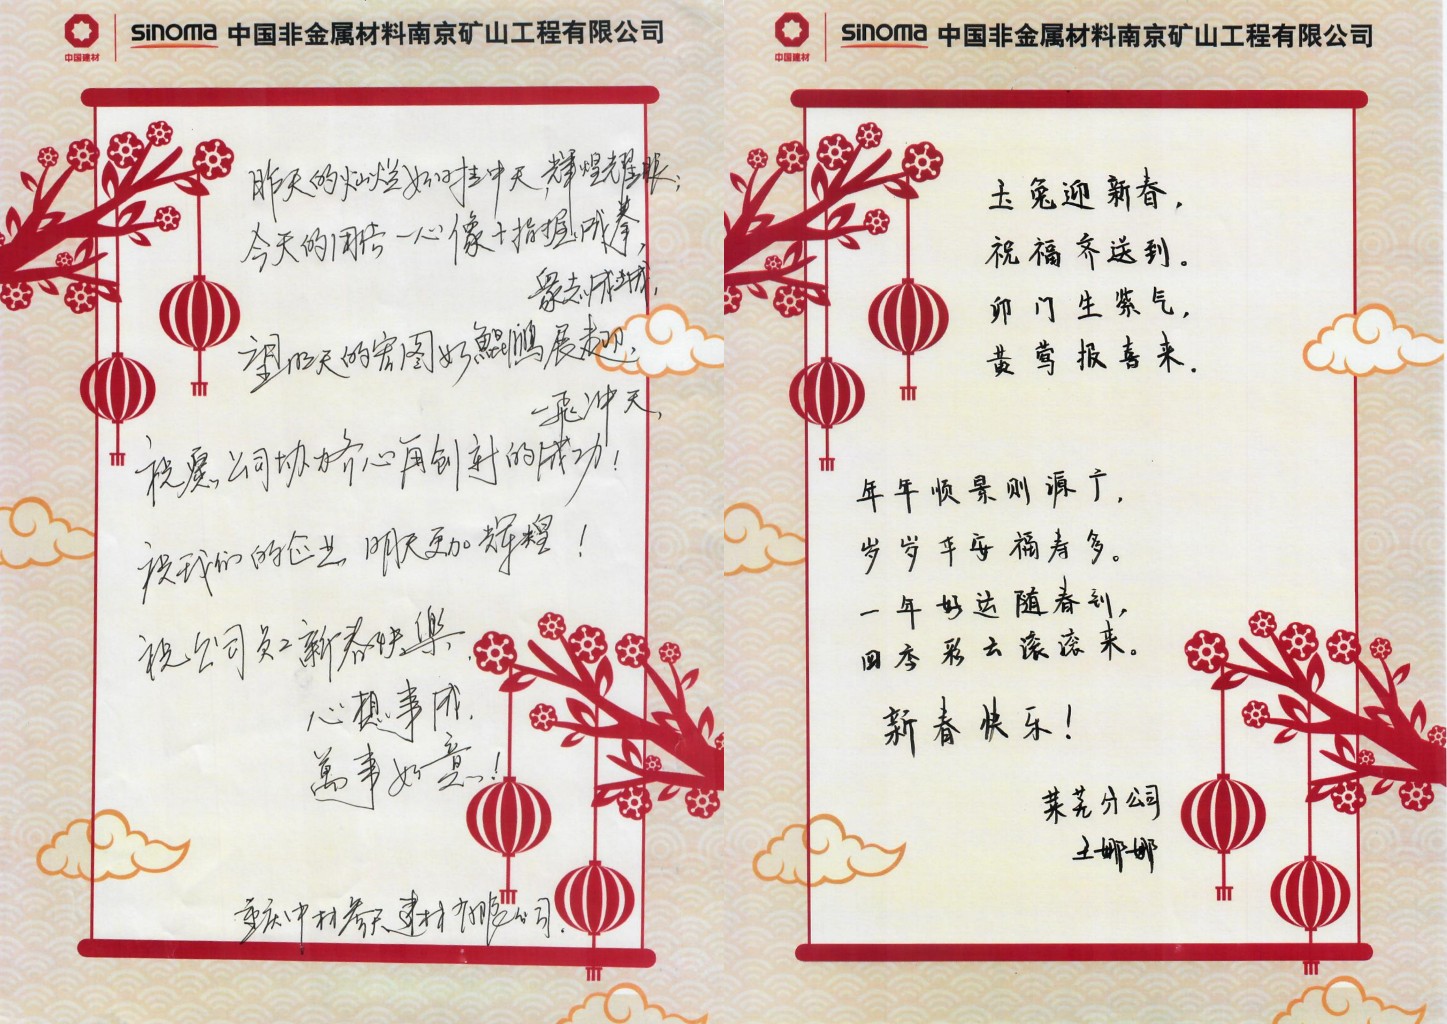 中国建材
sinoma 中国非金属材料南京矿山工程有限公司
昨天的灿烂如日挂中天,辉煌耀眼;
今天的团结一心像十指握成拳,
众志成城,
望明天的宏图如鲲鹏展翅,
一飞冲天,
祝愿公司协力齐心再创新的成功!
祝我们的企业明天更加辉煌!
祝公司员工新春快樂,
心想事成,
萬事如意!
重庆中材参天建材有限公司.
中国建材
sinoma 中国非金属材料南京矿山工程有限公司
玉兔迎新春,
祝福齐送到。
卯门生紫气,
黄莺报喜来.
年年顺景则源广,
岁岁平安福寿多。
一年好运随春到,
四季彩云滚滚来。
新春快乐!
莱芜分公司
王娜娜